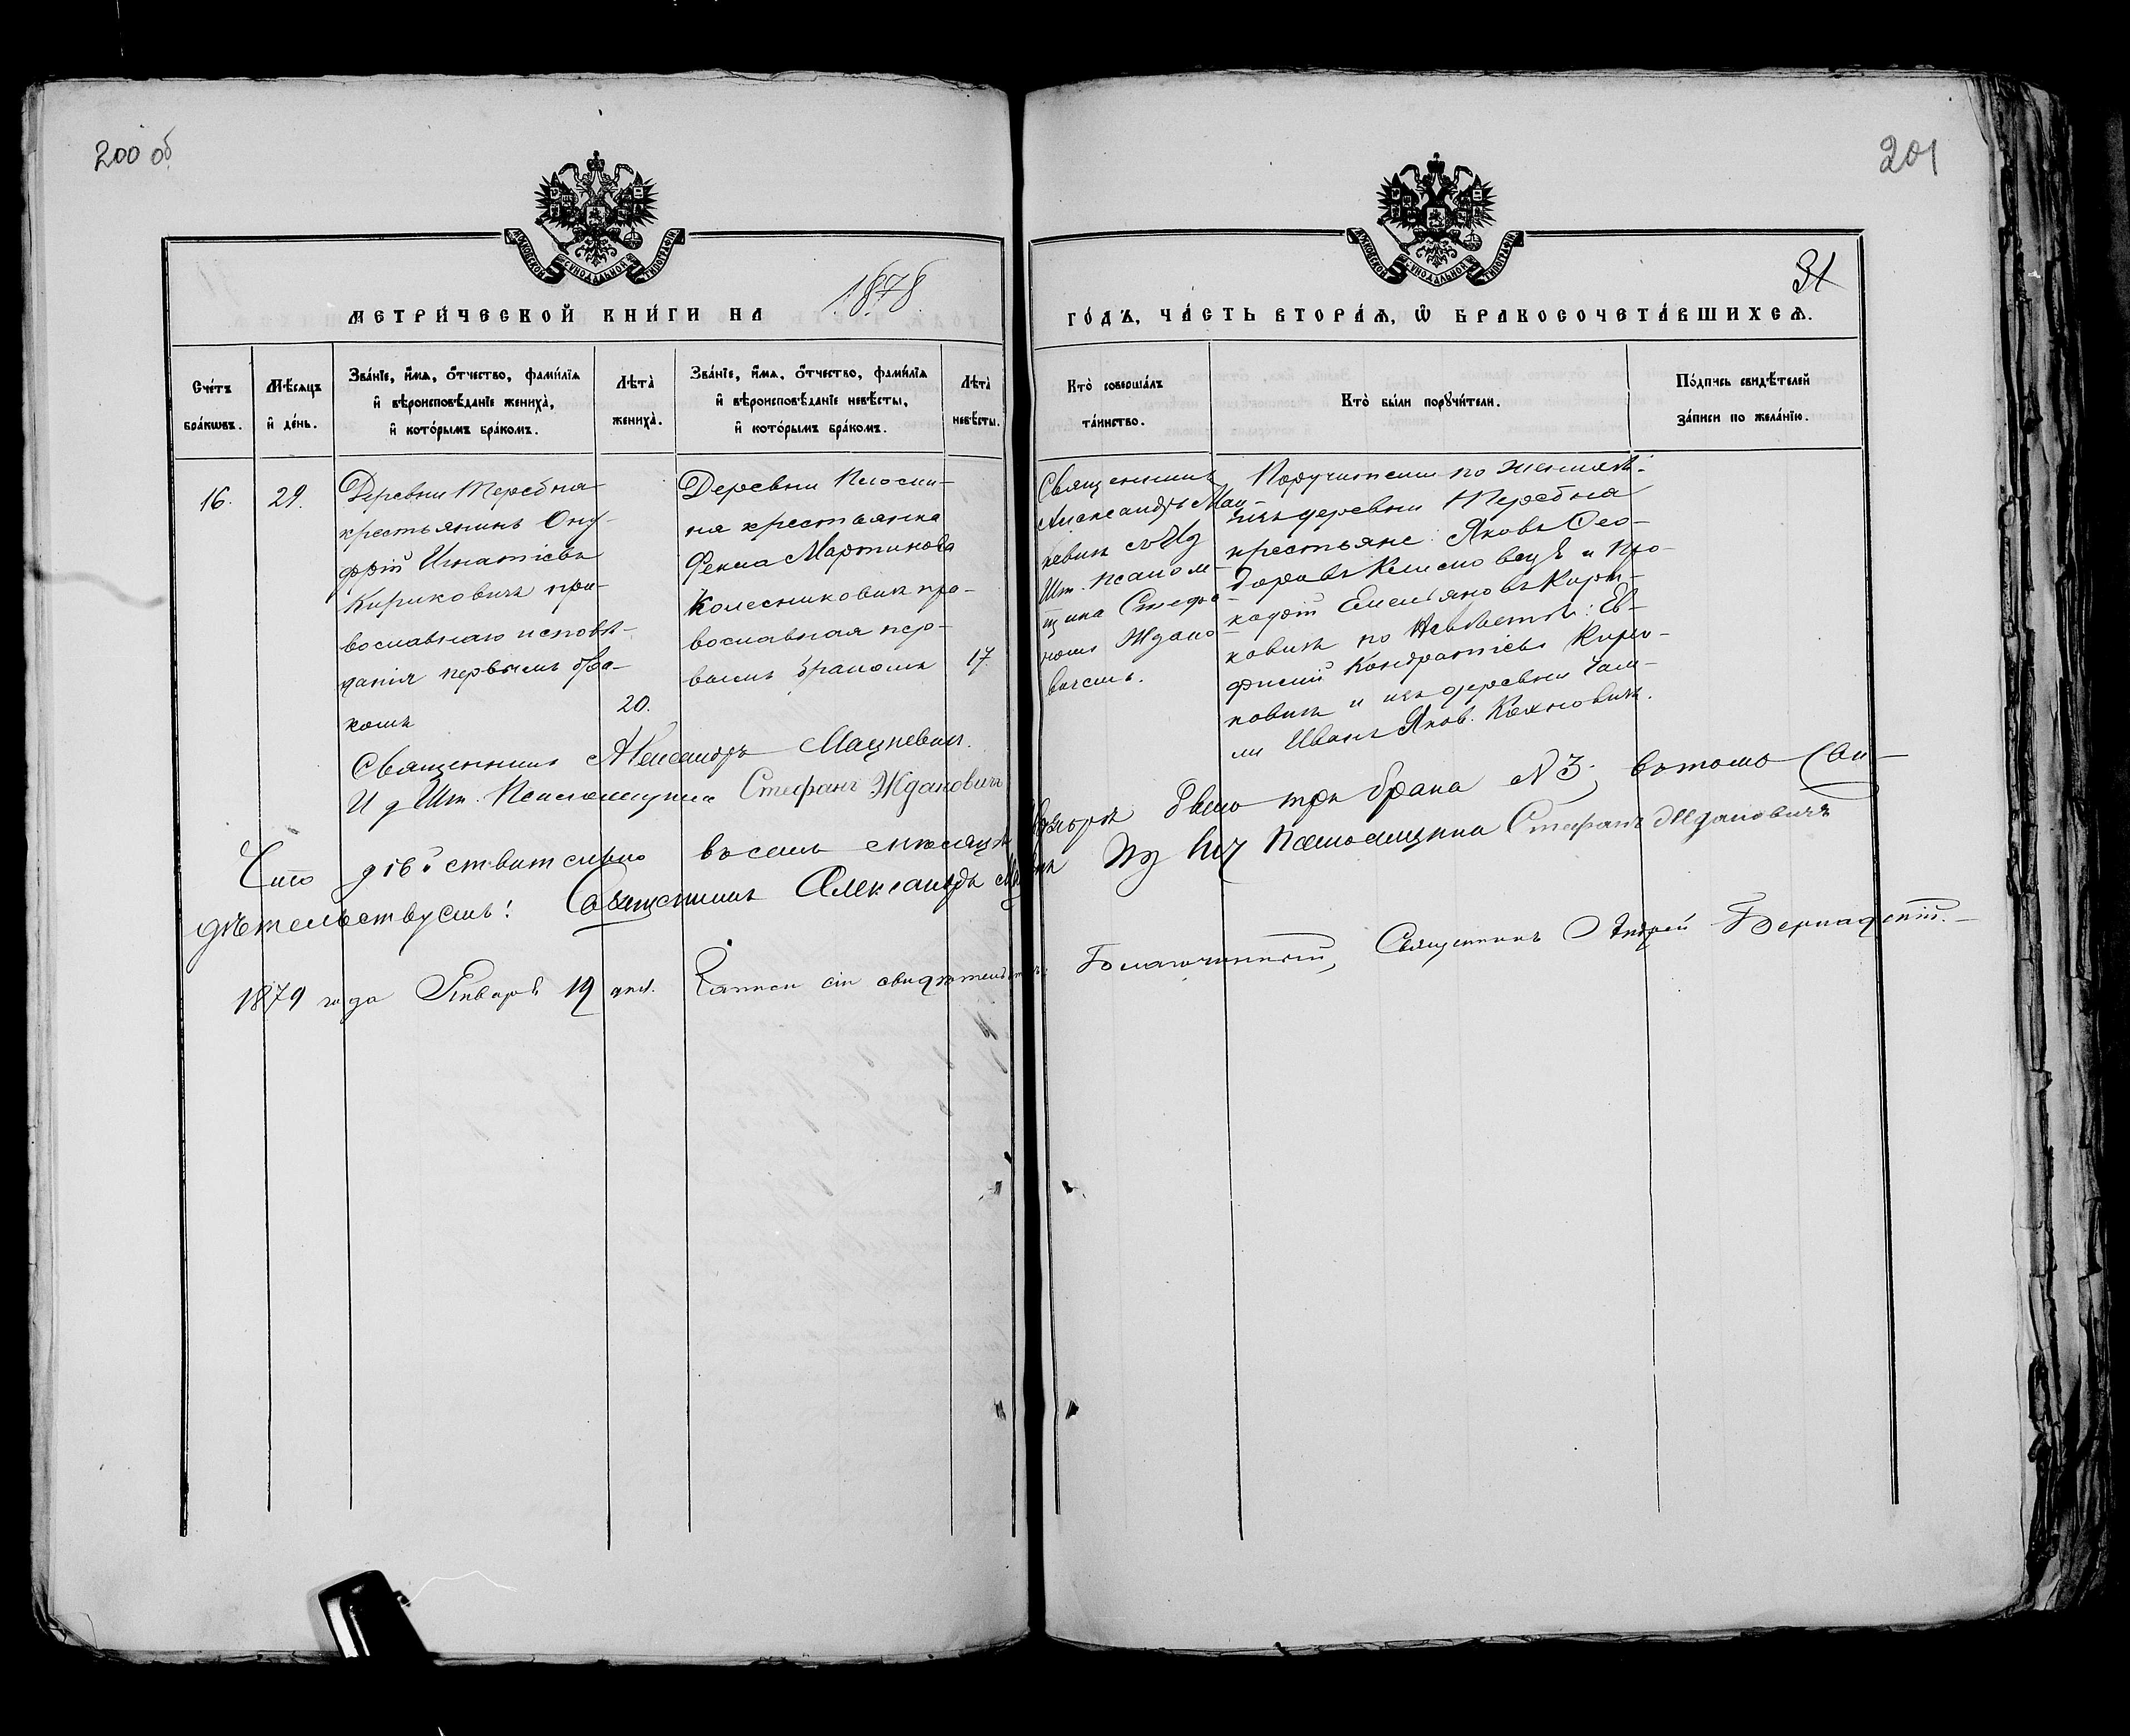 200 об
201
МОСКОВСКОЙ СѴНОДАЛЬНОЙ ТИПОГРАФІИ
МОСКОВСКОЙ СѴНОДАЛЬНОЙ ТИПОГРАФІИ
31
МЕТРИ́ЧЕСКОЙ КНИ́ГИ НА 1878
ГО́ДЪ, ЧА́СТЬ ВТОРА́Ѧ, Ѿ БРАКОСОЧЕТА́ВШИХСѦ.
Сче́тъ
бра́кѡвъ.
Мѣ́сяцъ
и҆ де́нь.
Зва́нїе, и҆́мѧ, ѻ҆́тчество, фами́лїѧ
и҆ вѣроисповѣ́данїе жениха̀,
и҆ кото́рымъ бра́комъ.
Лѣта̀
жениха̀.
Зва́нїе, и҆́мѧ, ѻ҆́тчество, фами́лїѧ
и҆ вѣроисповѣ́данїе невѣ́сты,
и҆ кото́рымъ бра́комъ.
Лѣта̀
невѣ́сты.
Кто̀ соверша́лъ
та́инство.
Кто̀ бы́ли порꙋчи́тели.
По́дпись свидѣ́телей
за́писи по жела́нїю.
16.
29.
Деревни Теребня
крестьянинъ Ону-
фрій Игнатіевъ
Кириковичъ пра-
вославнаго исповѣ-
данія первымъ бра-
комъ
20.
Деревни Плосли-
на крестьянка
Фекла Мартинова
Колесниковичъ пра-
вославная пер-
вымъ бракомъ
17.
Священникъ
Александръ Мац-
кевичъ съ И д
Шт. псалом-
щика Стефа-
номъ Ждано-
вичемъ.
Поручители по женихѣ:
изъ деревни Теребня
крестьяне: Яковъ Ѳео-
доровъ и Про-
кофій Емельяновъ Кири-
ковичъ по невѣстѣ: Ев-
фимій Кондратіевъ Кири-
ковичъ и изъ деревни
Иванъ Яков. Кохновичъ.
Священникъ Александръ Мацкевичъ.
И д Шт. Псаломщика Стефанъ Ждановичъ
Что дѣйствительно въ семъ мѣсяцѣ было три брака № 3; въ томъ Сви-
дѣтельствуемъ! Священникъ Александръ Псаломщика Стефанъ Ждановичъ
1879 года Января 19 дня. Записи сіи Благочинный, Священникъ Андрей